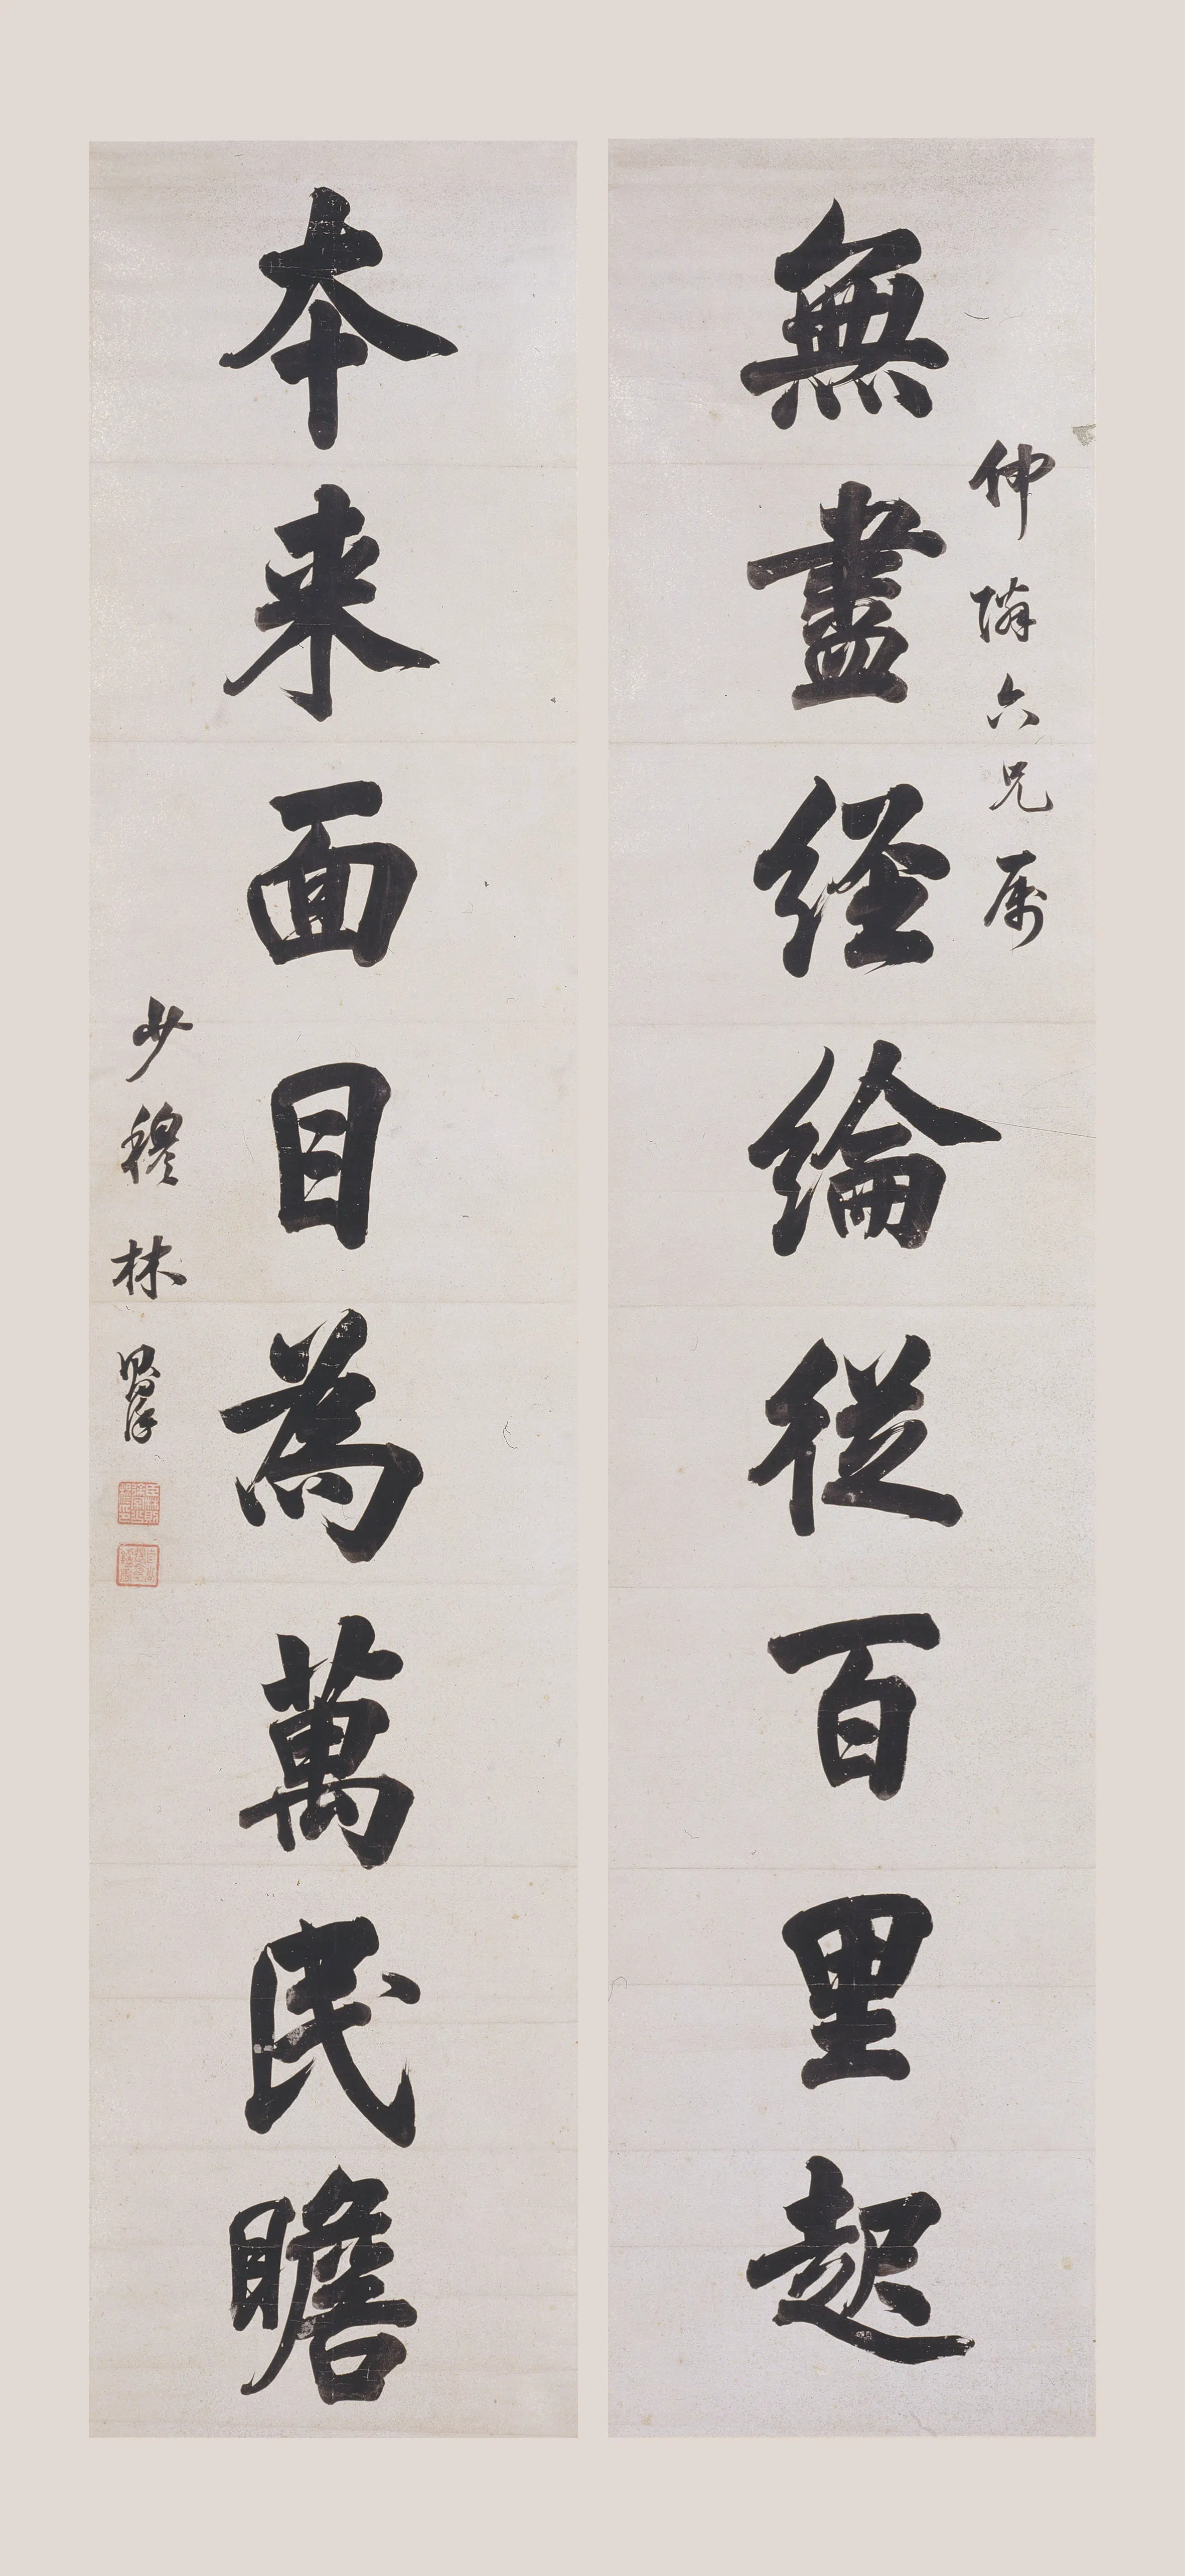 仲隣六兄属
無盡経綸從百里起
本来面目為萬民瞻
少穆林則徐